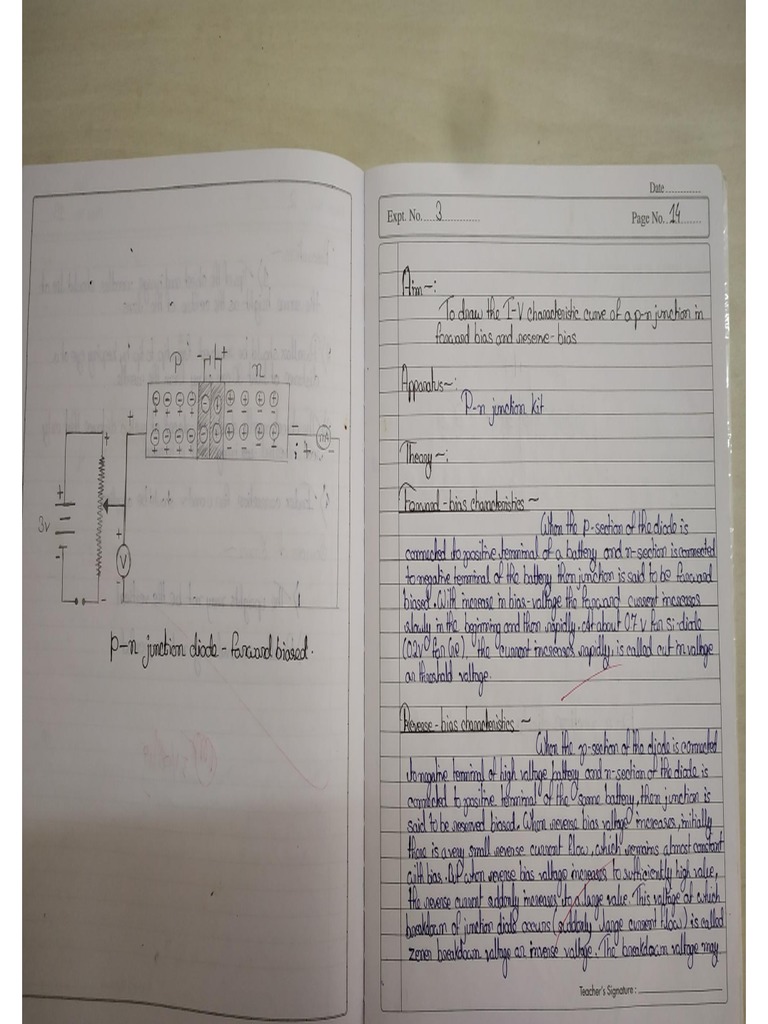 P
n
3v
V
mA
p-n junction diode - forward biased.
Date
Expt. No. 3
Page No. 14
Aim~:
To draw the I-V characteristic curve of a p-n junction in
forward bias and reserve-bias
Apparatus~:
P-n junction kit
Theory~:
Forward-bias characteristics ~
When the p-section of the diode is
connected to positive terminal of a battery and n-section is connected
to negative terminal of the battery then junction is said to be forward
biased. With increase in bias-voltage the forward current increases
slowly in the beginning and then rapidly. At about 0.7 v for si-diode
(0.2v for Ge), the current increases rapidly, is called cut in voltage
or threshold voltage.
Reverse-bias characteristics ~
When the p-section of the diode is connected
to negative terminal of high voltage battery and n-section of the diode is
connected to positive terminal of the same battery, then junction is
said to be reserved biased. When reverse bias voltage increases, initially
there is a very small reverse current flow, which remains almost constant
with bias. But when reverse bias voltage increases to sufficiently high value,
the reverse current suddenly increases to a large value. This voltage at which
breakdown of junction diode occurs (suddenly large current flow) is called
zener breakdown voltage or inverse voltage. The breakdown voltage may
Teacher's Signature :